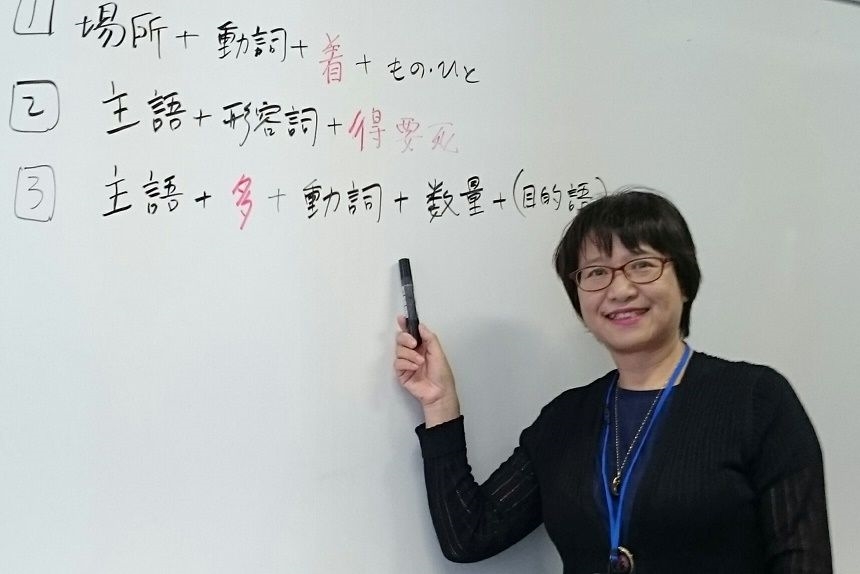 1 場所+動詞+着+もの・ひと
2 主語+形容詞+得要死
3 主語+多+動詞+数量+(目的語)